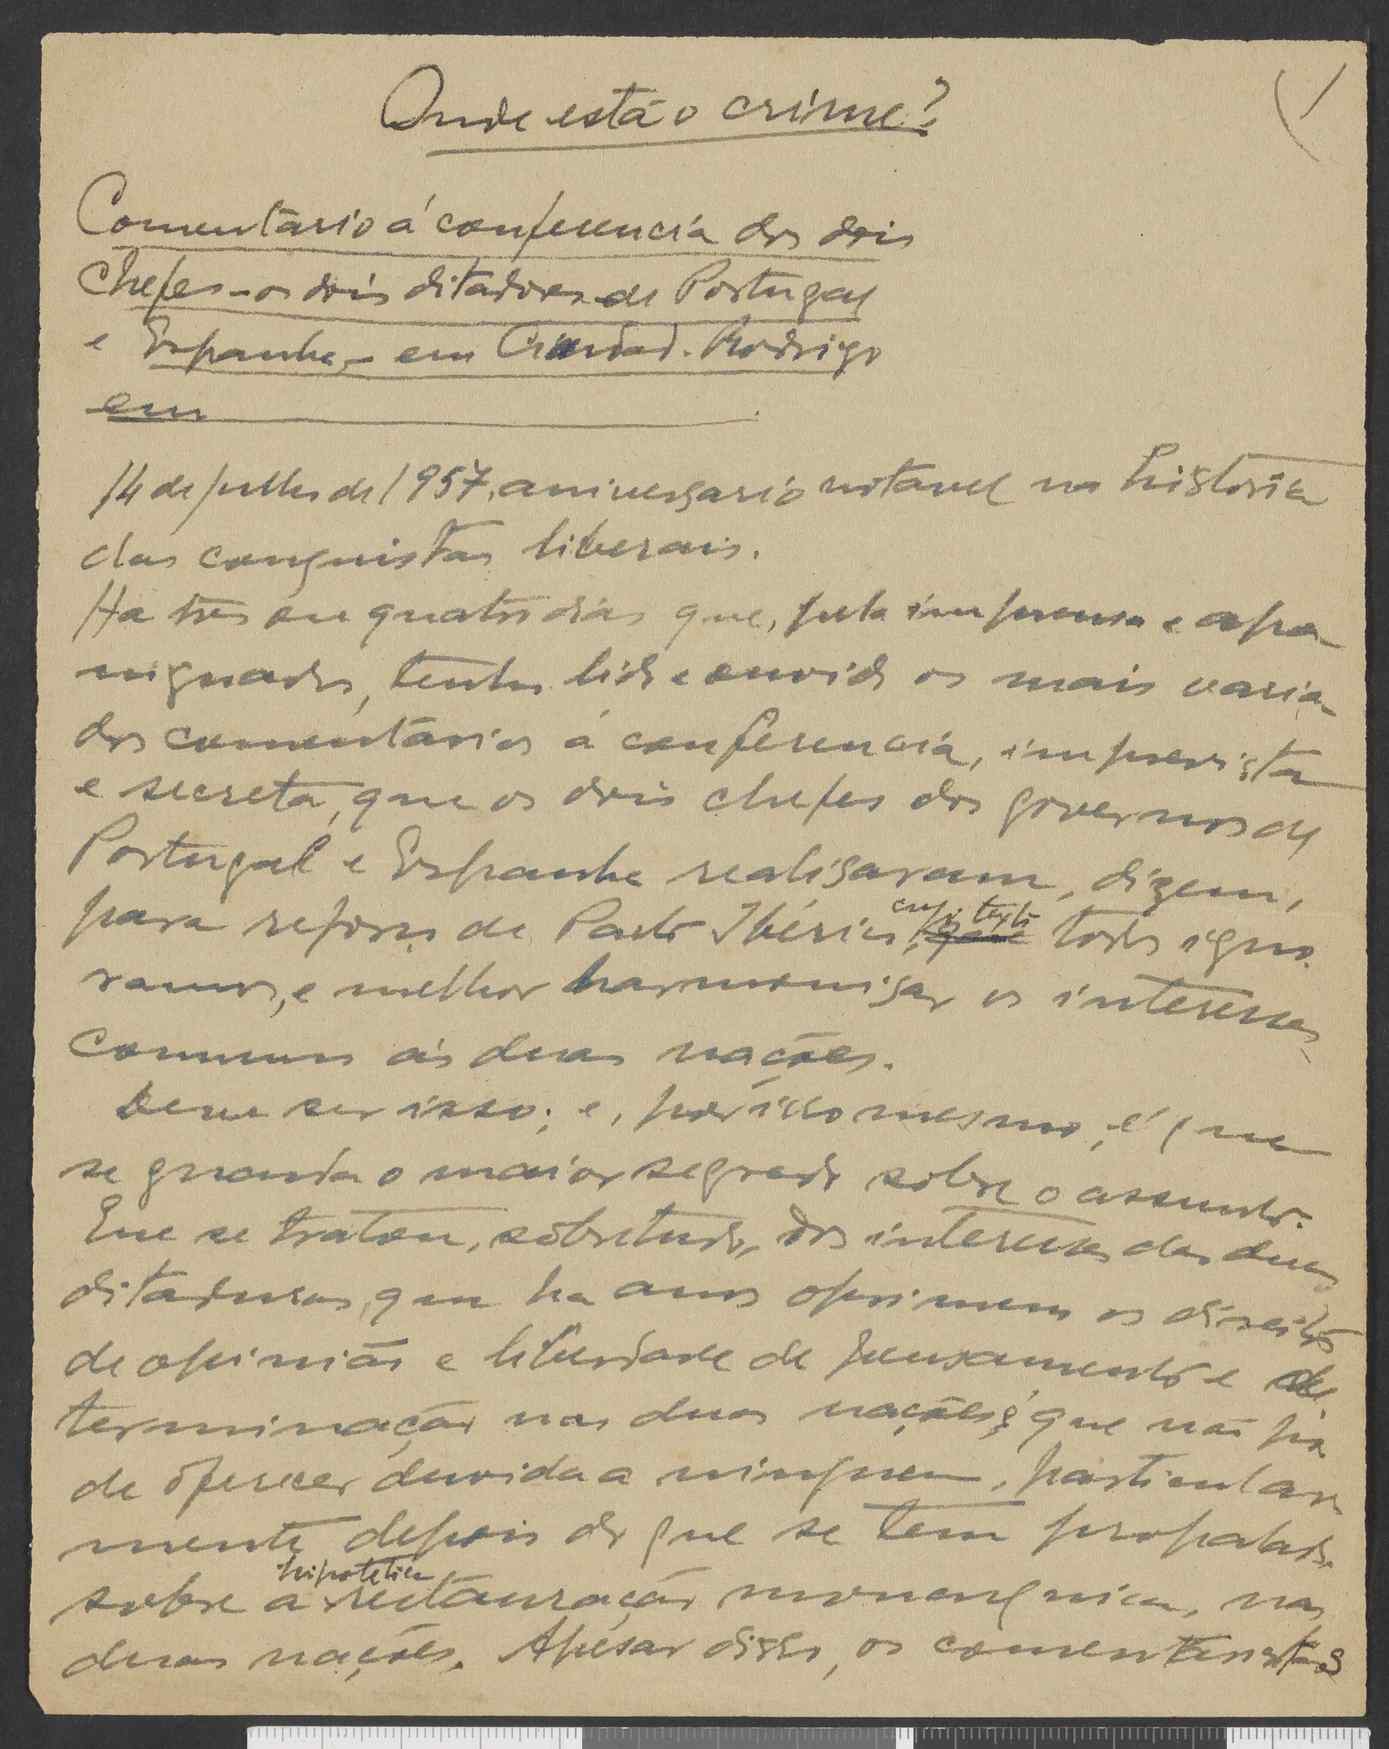 Onde está o crime?
1
Comentário á conferencia dos dois
chefes - os dois ditadores de Portugal
e Espanha - em Ciudad. Rodrigo
em
14 de julho de 1957, aniversario notavel na história
das conquistas liberais.
Ha tres ou quatro dias que, pela imprensa e apa-
niguados, tenho lido e ouvido os mais varia-
dos comentários á conferencia, imprevista
e secreta, que os dois chefes dos governos de
Portugal e Espanha realisaram, dizem,
para reforço do Pacto Ibérico, cujo texto todos igno-
ramos, e melhor harmonisar os interesses
comuns ás duas nações.
Deve ser isso; e, por isso mesmo, é que
se guarda o maior segredo sobre o assunto.
Que se tratou, sobretudo, dos interesses das duas
ditaduras, que ha anos oprimem os direitos
de opinião e liberdade de pensamento e de-
terminação nas duas nações, é que não po-
de oferecer duvida a ninguem, particular-
mente depois do que se tem propalado
sobre a hipotetica restauração monarquica, nas
duas nações. Apesar disso, os comentaristas